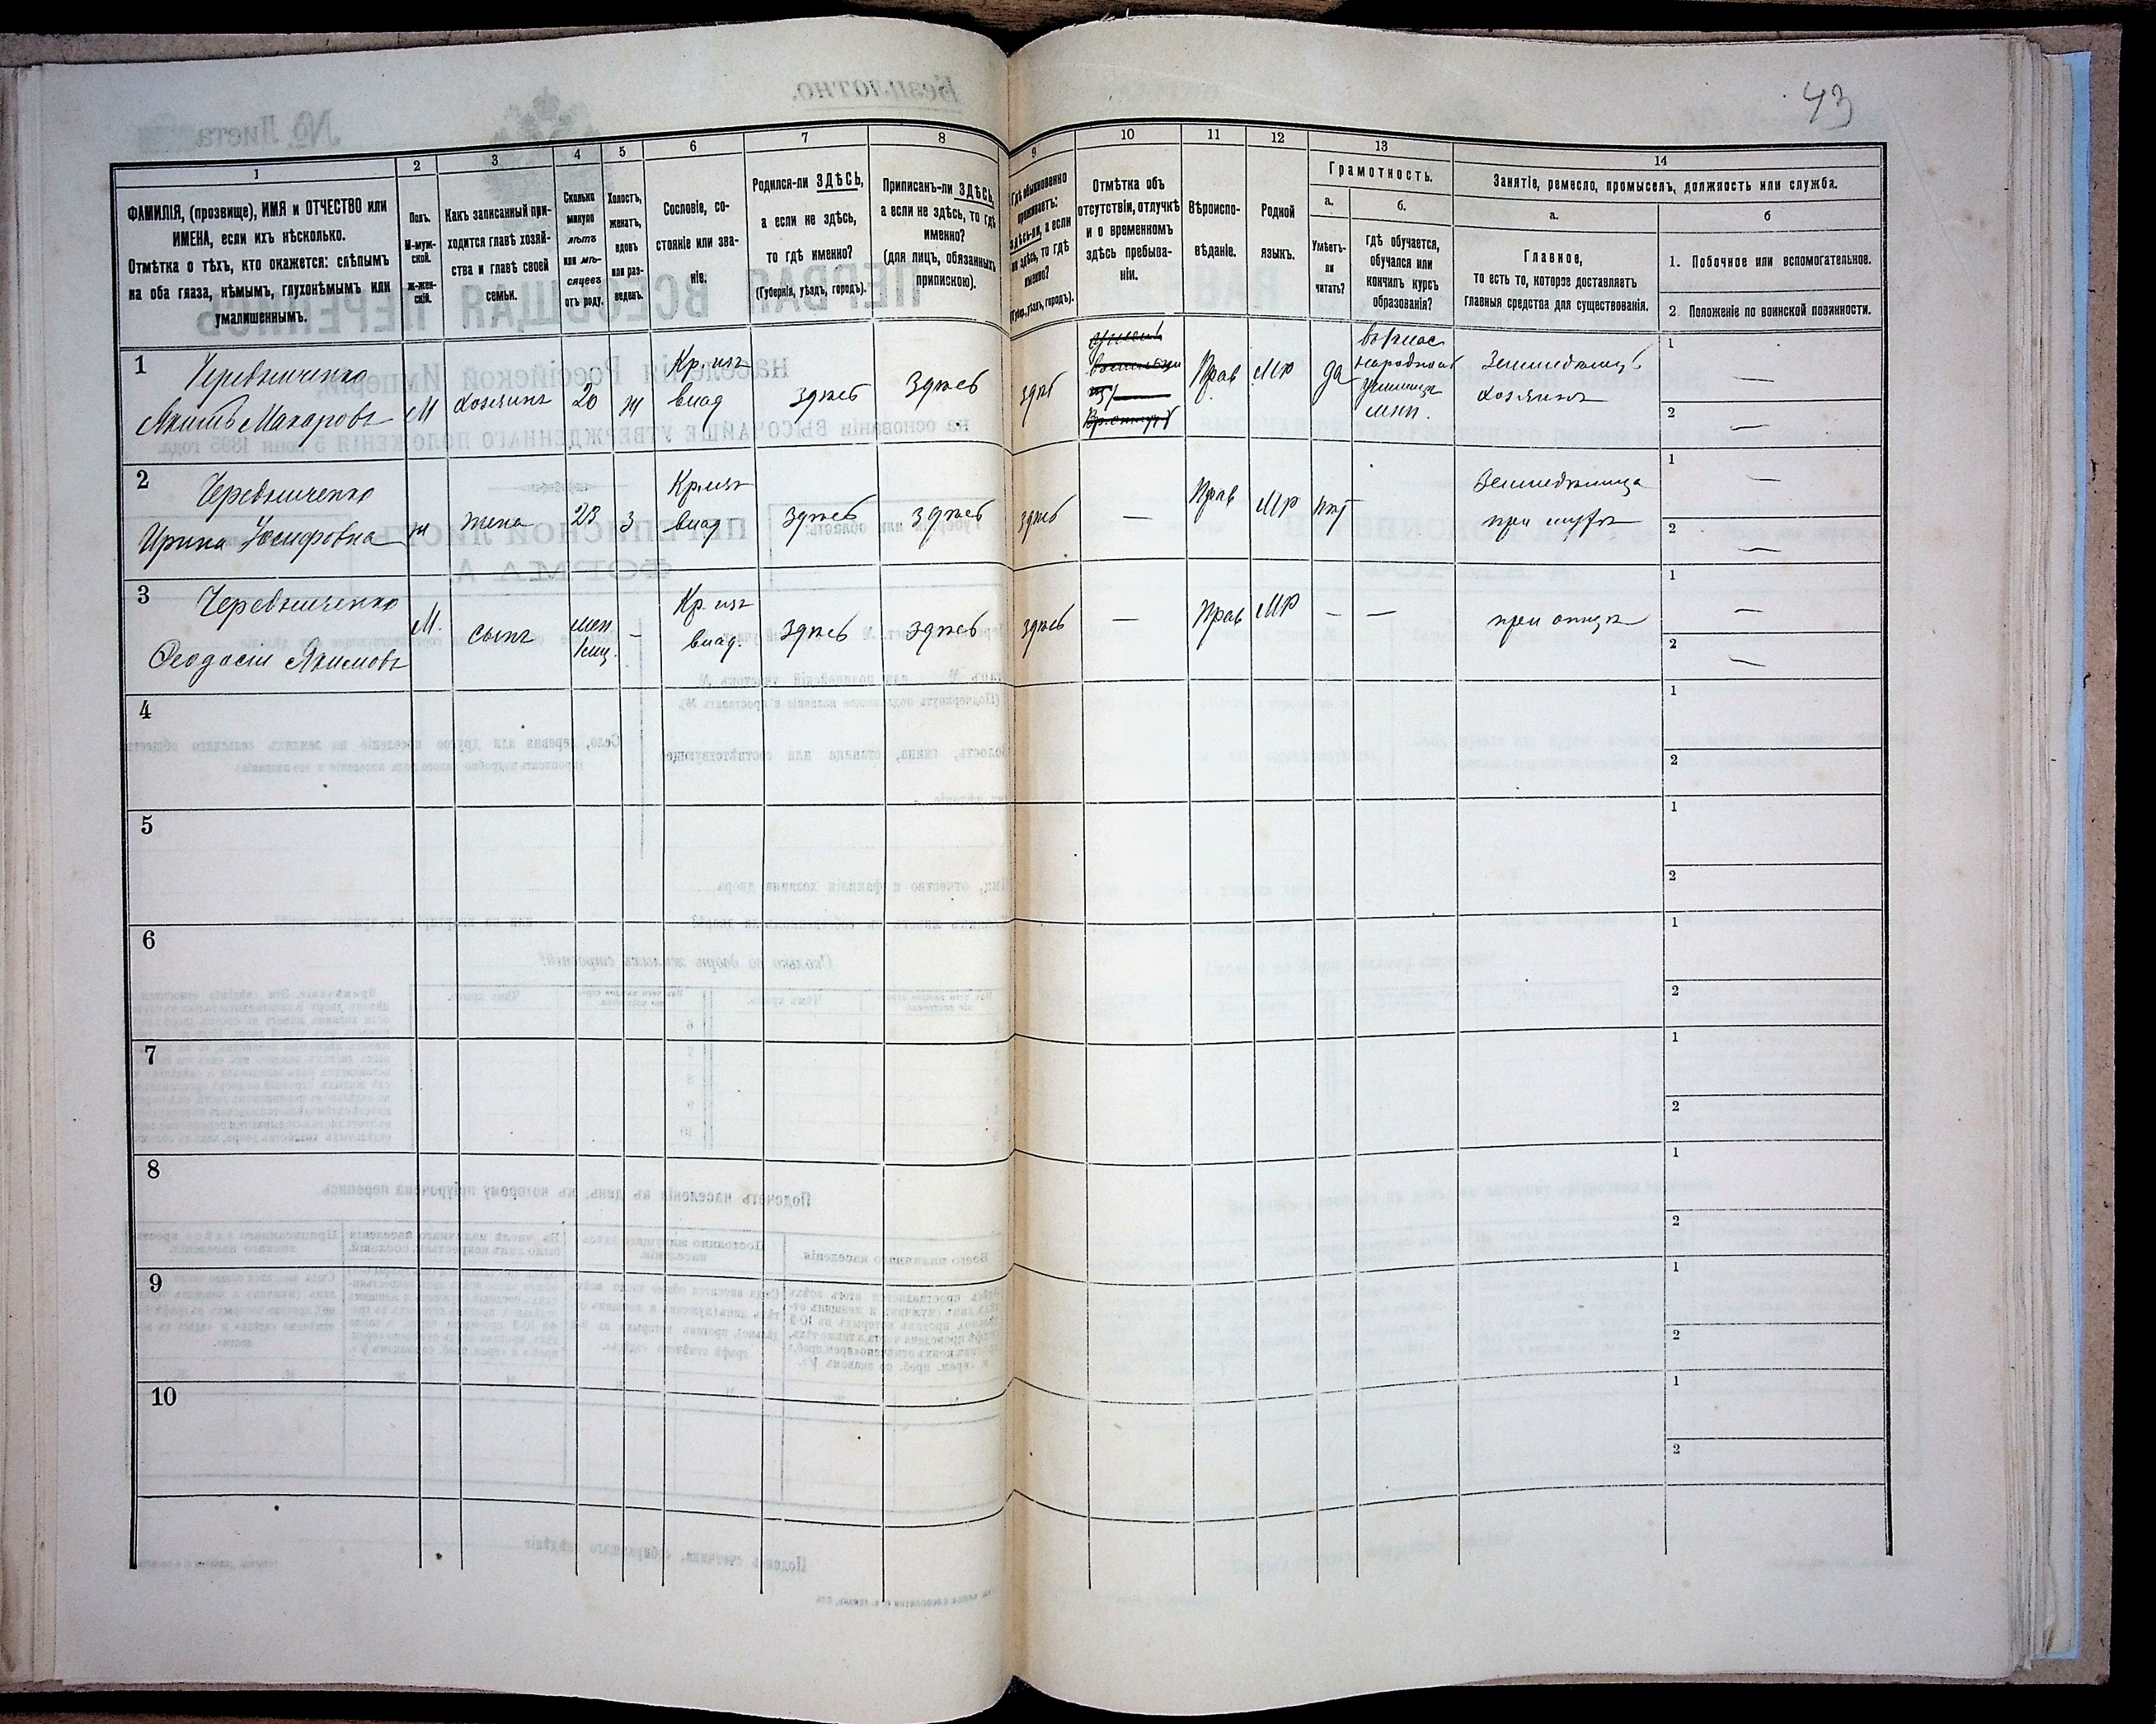 43
1
2
3
4
5
6
7
8
9
10
11
12
13
14
ФАМИЛІЯ, (прозвище), ИМЯ и ОТЧЕСТВО или
ИМЕНА, если ихъ нѣсколько.
Отмѣтка о тѣхъ, кто окажется: слѣпымъ
на оба глаза, нѣмымъ, глухонѣмымъ или
умалишеннымъ.
Полъ.
М-муж-
ской.
Ж-жен-
скій.
Какъ записанный при-
ходится главѣ хозяй-
ства и главѣ своей
семьи.
Сколько
минуло
лѣтъ
или мѣ-
сяцевъ
отъ роду.
Холостъ,
женатъ,
вдовъ
или раз-
веденъ.
Сословіе, со-
стояніе или зва-
ніе.
Родился-ли ЗДѢСЬ,
а если не здѣсь,
то гдѣ именно?
(Губернія, уѣздъ, городъ).
Приписанъ-ли ЗДѢСЬ,
а если не здѣсь, то гдѣ
именно?
(для лицъ, обязанныхъ
припискою).
Гдѣ обыкновенно
проживаетъ:
здѣсь-ли, а если
не здѣсь, то гдѣ
именно?
(Губер., уѣздъ, городъ).
Отмѣтка объ
отсутствіи, отлучкѣ
и о временномъ
здѣсь пребыва-
ніи.
Вѣроиспо-
вѣданіе.
Родной
языкъ.
Грамотность.
а.
б.
Умѣетъ-
ли
читать?
гдѣ обучается,
обучался или
кончилъ курсъ
образованія?
Занятіе, ремесло, промыселъ, должность или служба.
а.
б
Главное,
то есть то, которое доставляетъ
главныя средства для существованія.
1. Побочное или вспомогательное.
2. Положеніе по воинской повинности.
1
Чередниченко
Якимъ Макаровъ
М
хозяинъ
20
ж
Кр. изъ
влад
здѣсь
здѣсь
здѣсь
Прав
Мр
да
народном
Земледѣлецъ
хозяинъ
1
—
2
—
2
Чередниченко
Ирина Іосифовна
ж
жена
23
з
Кр. изъ
влад
здѣсь
здѣсь
здѣсь
—
Прав
Мр
нѣт
Земледѣлица
при мужѣ
1
—
2
—
3
Чередниченко
Феодосій Якимовъ
М.
сынъ
мен
1 мц.
—
Кр. изъ
влад.
здѣсь
здѣсь
здѣсь
—
Прав
Мр
—
—
при отцѣ
1
—
2
—
4
1
2
5
1
2
6
1
2
7
1
2
8
1
2
9
1
2
10
1
2